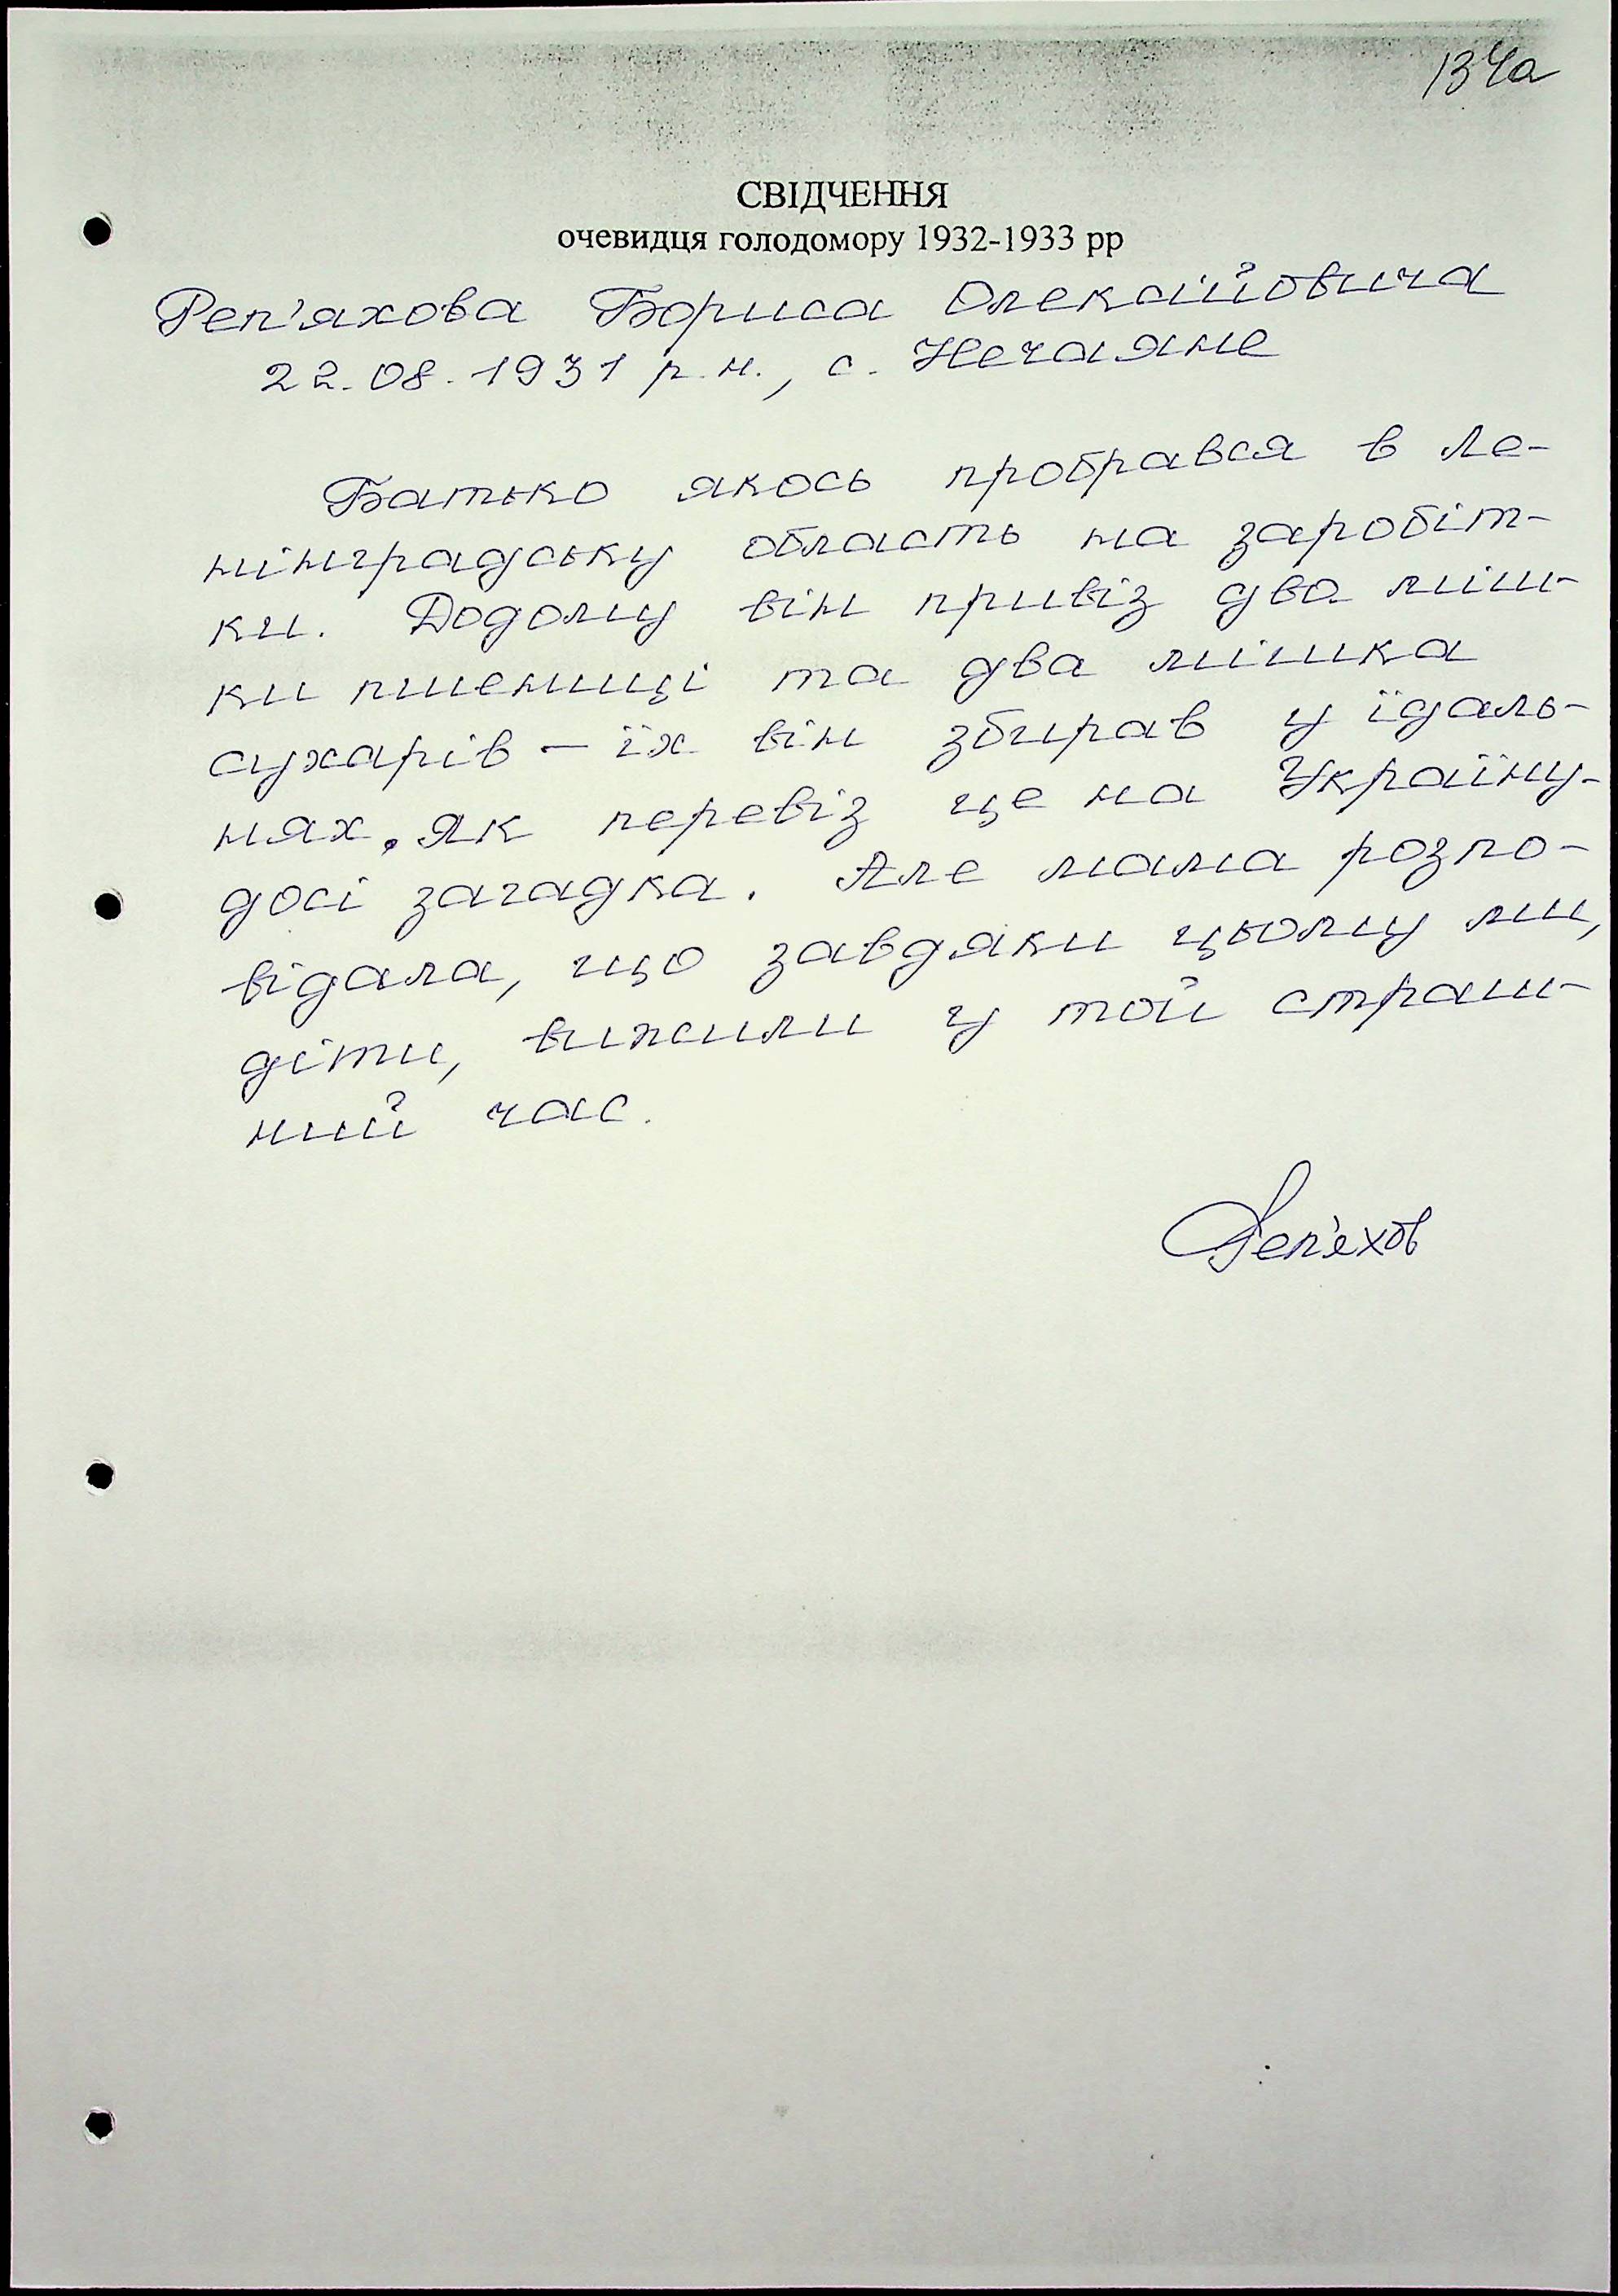 134а
СВІДЧЕННЯ
очевидця голодомору 1932-1933 рр
Реп'яхова Бориса Олексійовича
22.08.1931 р.н., с. Нечаяне
Батько якось пробрався в Ле-
нінградську область на заробіт-
ки. Додому він привіз два міш-
ки пшениці та два мішка
сухарів – їх він збирав у їдаль-
нях. Як перевіз це на Україну-
досі загадка. Але мама розпо-
відала, що завдяки цьому ми,
діти, вижили у той страш-
ний час.
Реп'яхов